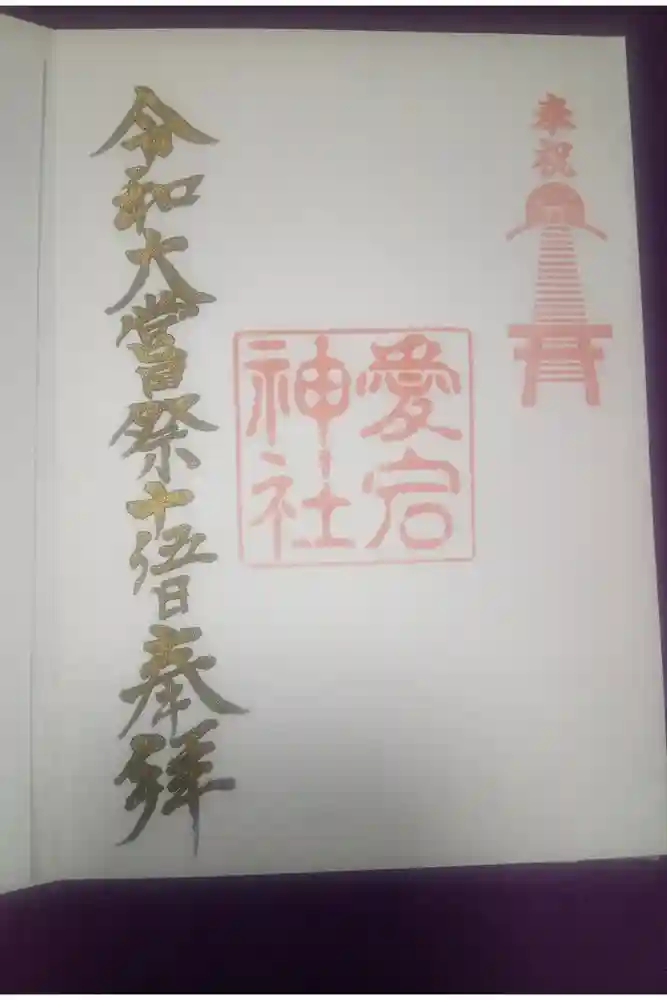 奉祝
愛宕
神社
令和大嘗祭十伍日奉拝